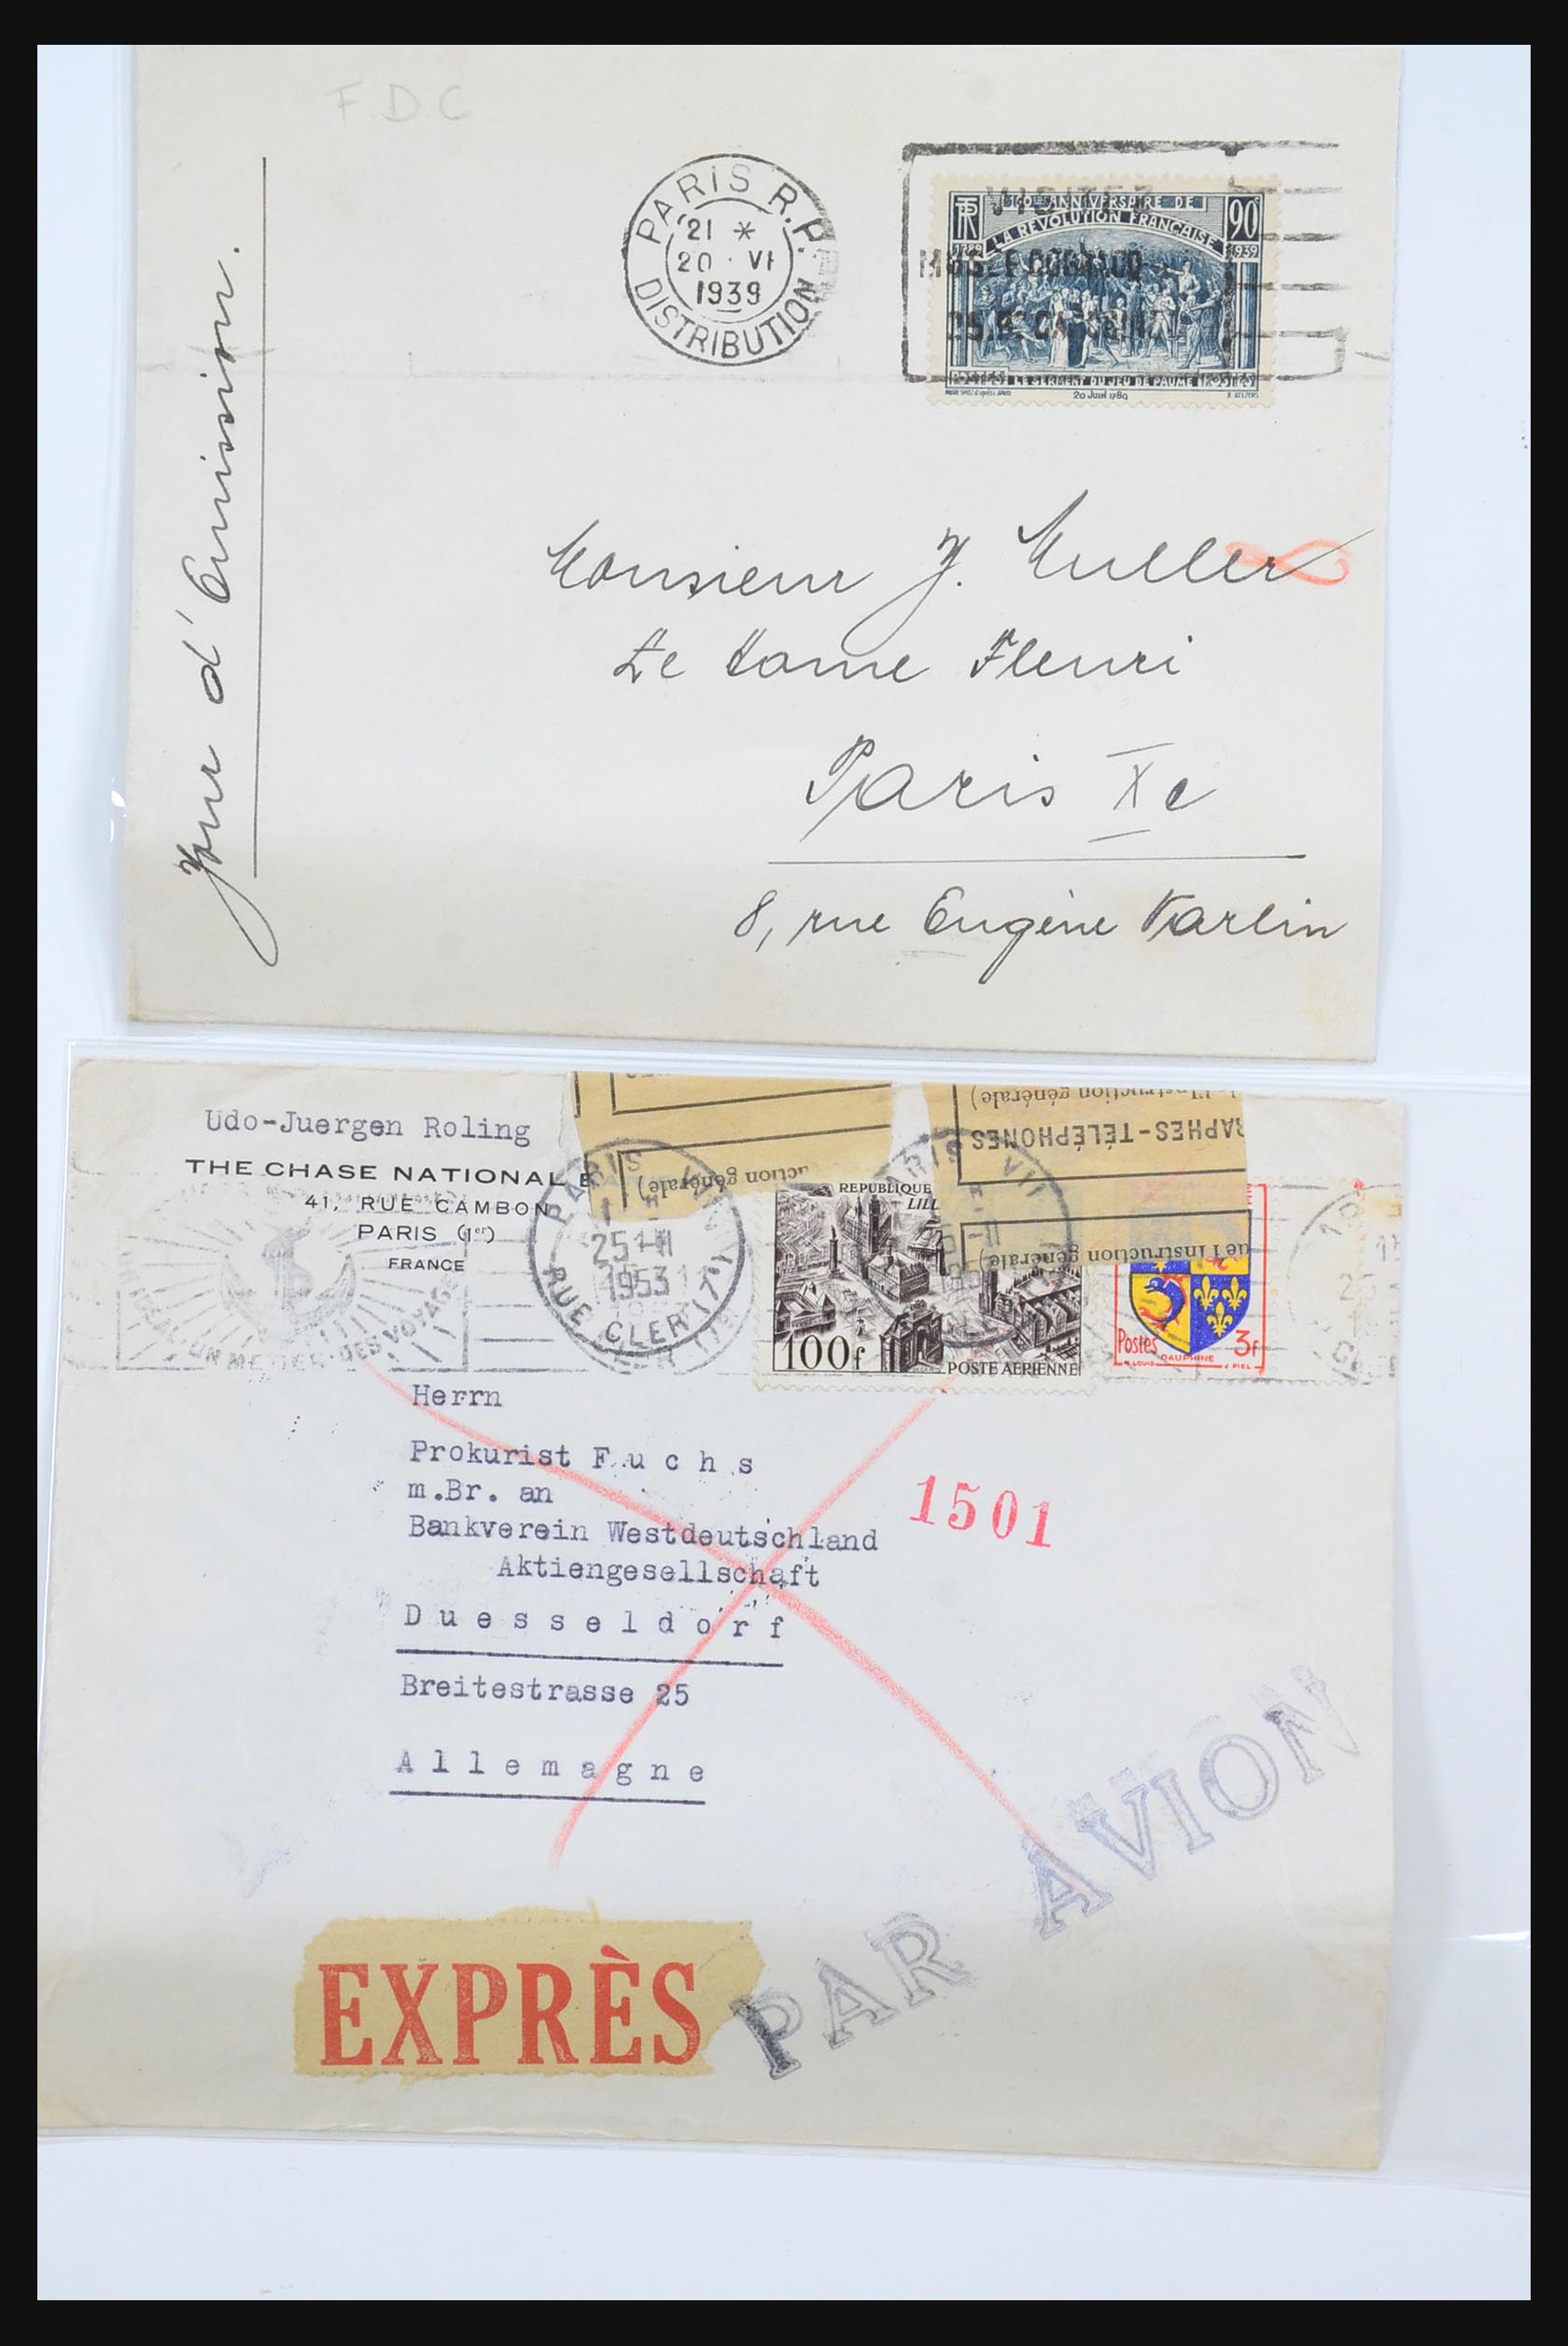 F.D.C
Jour d'Emission.
PARIS R.P.
21 *
20 VI
1939
DISTRIBUTION
VISITEZ
150e ANNIVERSAIRE DE
LA RÉVOLUTION FRANÇAISE
90c
1789
1939
POSTES LE SERMENT DU JEU DE PAUME POSTES
20 Juin 1789
Monsieur J. Muller
Le Dome Fleuri
Paris Xe
8, rue Eugène Varlin
Udo-Juergen Roling
THE CHASE NATIONAL B
41, RUE CAMBON
PARIS (1er)
FRANCE
UN METIER DES VOYAGES
PARIS VII
25-II
1953
RUE CLER (7e)
uction générale)
de l'Instruction générale)
RAPHES-TÉLÉPHONES
de l'Instruction générale)
REPUBLIQUE
LILL
100f
POSTE AERIENNE
Postes
3f
DAUPHINE
Herrn
Prokurist F u c h s
m.Br. an
Bankverein Westdeutschland
Aktiengesellschaft
D u e s s e l d o r f
Breitestrasse 25
A l l e m a g n e
1501
EXPRÈS
PAR AVION